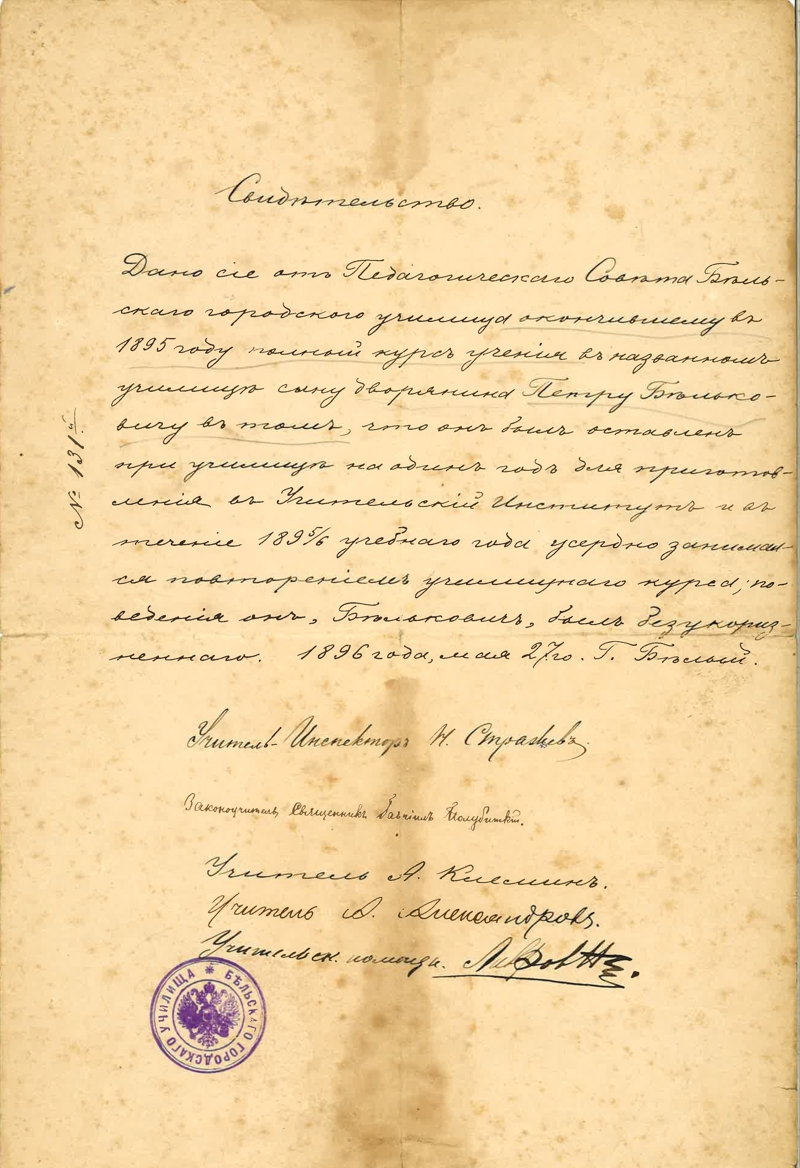 Свидѣтельство.
Дано сіе отъ Педагогическаго Совѣта Бѣль-
скаго городского училища окончившему въ
1895 году полный курсъ ученія въ названномъ
училищѣ сыну дворянина Петру Бѣлько-
вичу въ томъ, что онъ былъ оставленъ
при училищѣ на одинъ годъ для приготов-
ленія въ Учительскій Институтъ и въ
теченіе 1895/6 учебнаго года усердно занимал-
ся повтореніемъ училищнаго курса; по-
веденія онъ, Бѣльковичъ, былъ безукориз-
неннаго. 1896 года, мая 27го. Г. Бѣлый.
№ 131й.
Учитель-Инспекторъ Н.
Законоучитель Священникъ
Учитель А. Клеминъ.
Учитель А. Александровъ.
Учительск. помощн.
БѢЛЬСКАГО ГОРОДСКАГО УЧИЛИЩА